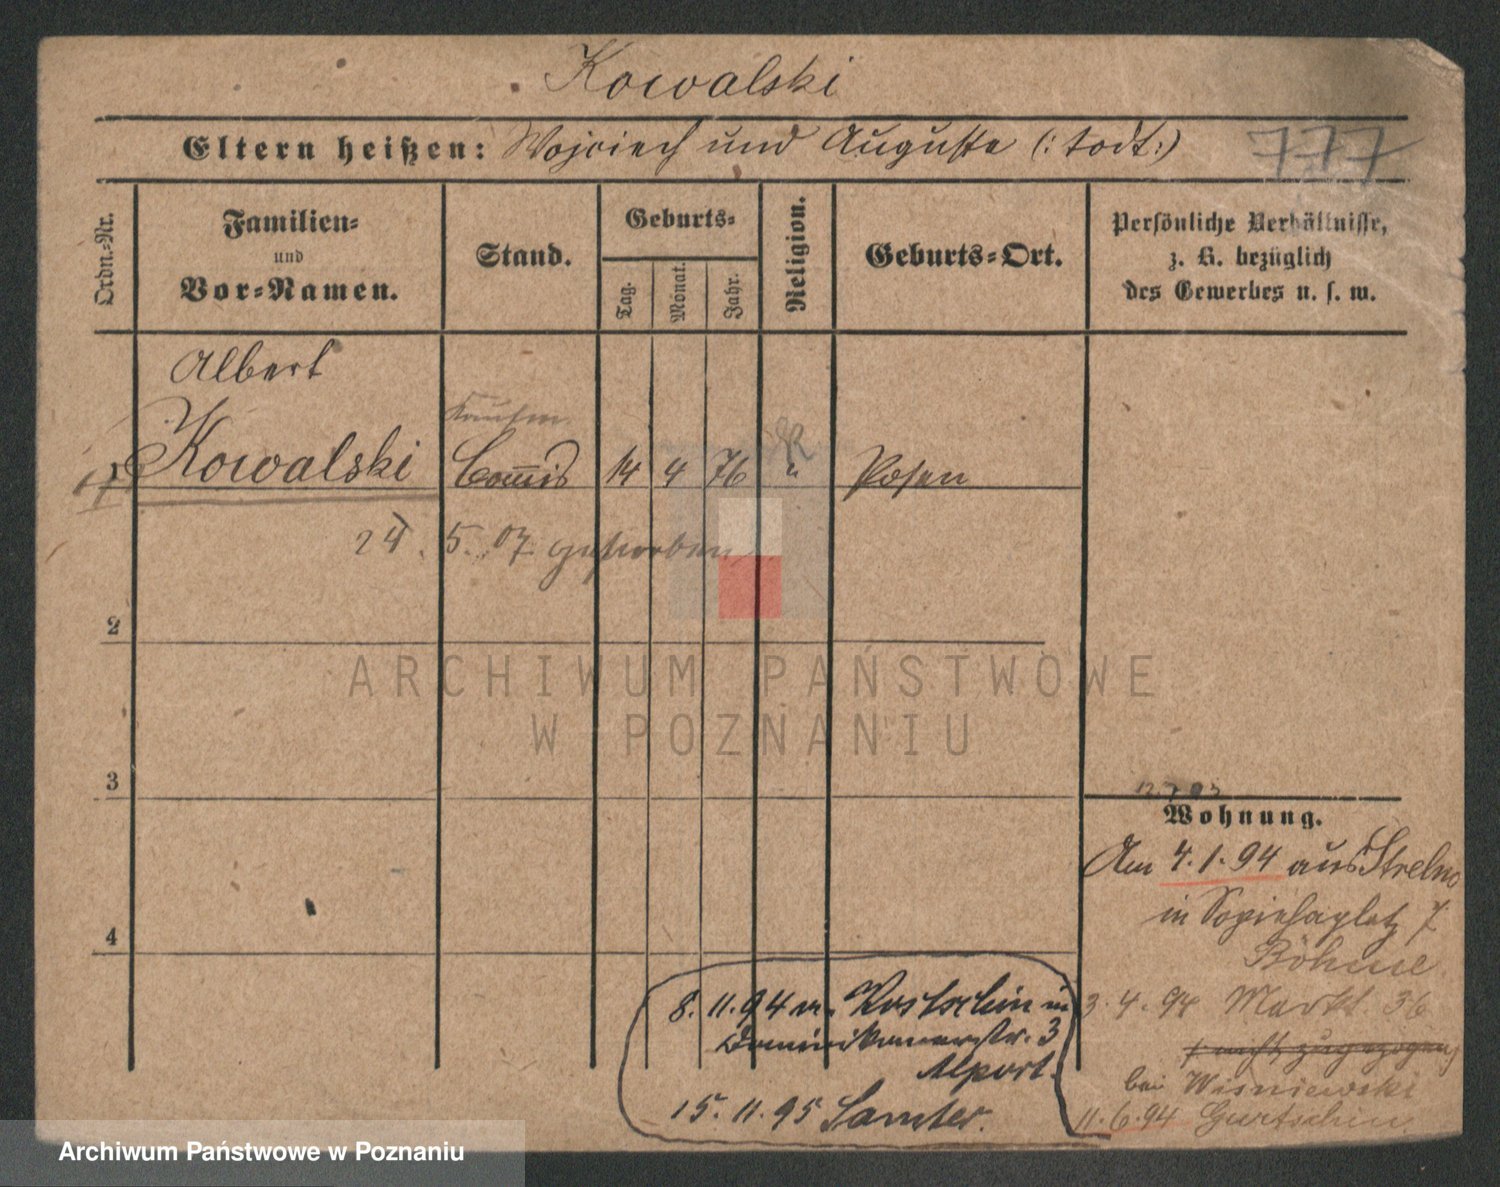 Kowalski
Eltern heißen: Wojciech und Auguste (: todt :)
777
Ordn.-Nr.
Familien-
und
Vor-Namen.
Stand.
Geburts-
Tag.
Monat.
Jahr.
Religion.
Geburts-Ort.
Persönliche Verhältnisse,
z. B. bezüglich
des Gewerbes u. s. w.
Albert
Kaufm
1 Kowalski Commis 14 4 76 Posen
24. 5. 07 gestorben
2
ARCHIWUM PAŃSTWOWE
W POZNANIU
3
12.7.93
Wohnung.
Am 4.1.94 aus Strelno
in Sapiehaplatz 7
Böhme
4
3.4.94 Markt. 36
nicht zugezogen
bei Wisniewski
11.6.94 Gurtschin
8.11.94 v. Kostschin in
Dominikanerstr. 3
Alport.
15.11.95 Samter.
Archiwum Państwowe w Poznaniu